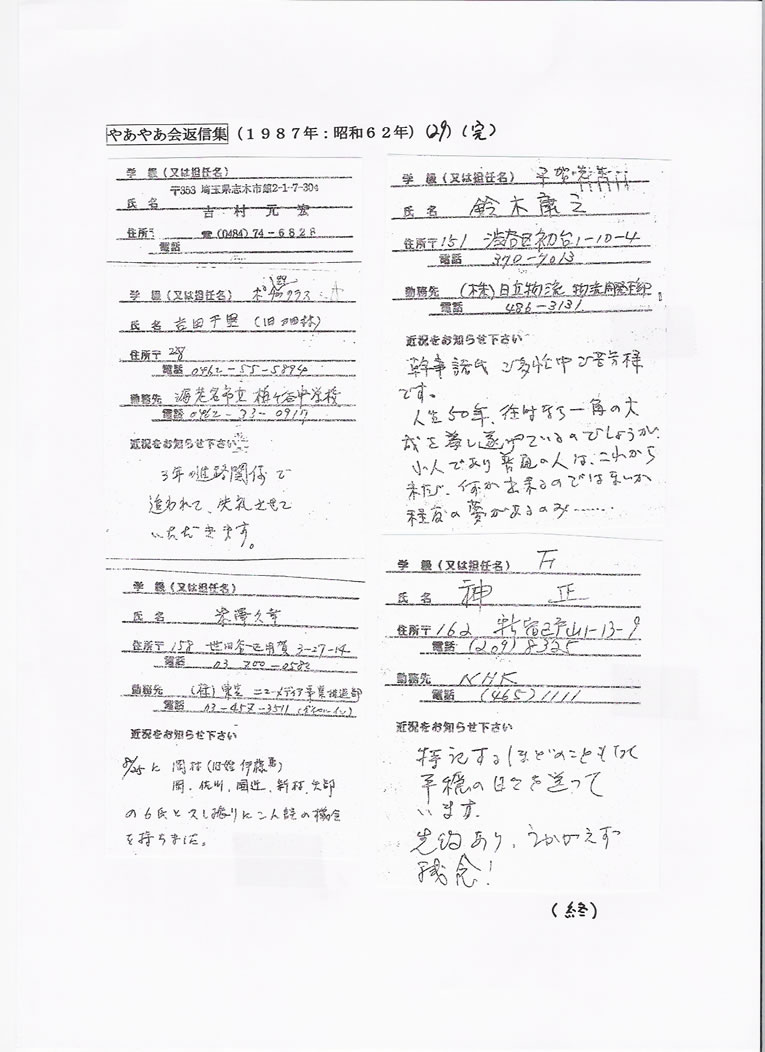 やあやあ会返信集（１９８７年：昭和６２年）(29)(完)
学級（又は担任名）
〒353 埼玉県志木市館2-1-7-304
氏名 吉村元宏
住所〒 ☎(0484)74-6828
電話
学級（又は担任名） クラス
氏名 吉田千里（旧
住所〒 28
電話 0462-55-5894
勤務先 海老名市立 中学校
電話 0462-33-0917
近況をお知らせ下さい
3年の進路関係で
追われて、失礼させて
いただきます。
学級（又は担任名）
氏名 米澤久幸
住所〒158 世田谷区 3-27-14
電話 03 700-0582
勤務先 （株）東芝 ニューメディア事業推進部
電話 03-457-3511（ダイヤルイン）
近況をお知らせ下さい
8/25に 岡村（旧姓伊藤
岡、佐川、 新村、矢部
の6氏と久し振りに の機会
を持ちました。
学級（又は担任名） 平賀
氏名 鈴木康之
住所〒151 渋谷区初台1-10-4
電話 370-7013
勤務先 （株）日立物流 物流
電話 486-3131
近況をお知らせ下さい
幹事諸氏 ご多忙中ご苦労様
です。
人生50年、 一角の大
成を しょうか
小人であり普通の人は、これから
何か出来るのではないか
程度の夢があるのみ……
学級（又は担任名）
氏名 神 正
住所〒162 新宿区戸山1-13-9
電話 (209)8325
勤務先 NHK
電話 (465)1111
近況をお知らせ下さい
特記するほどのこともなく
平穏の日々を送って
います。
先約あり、うかがえず
残念！
(終)